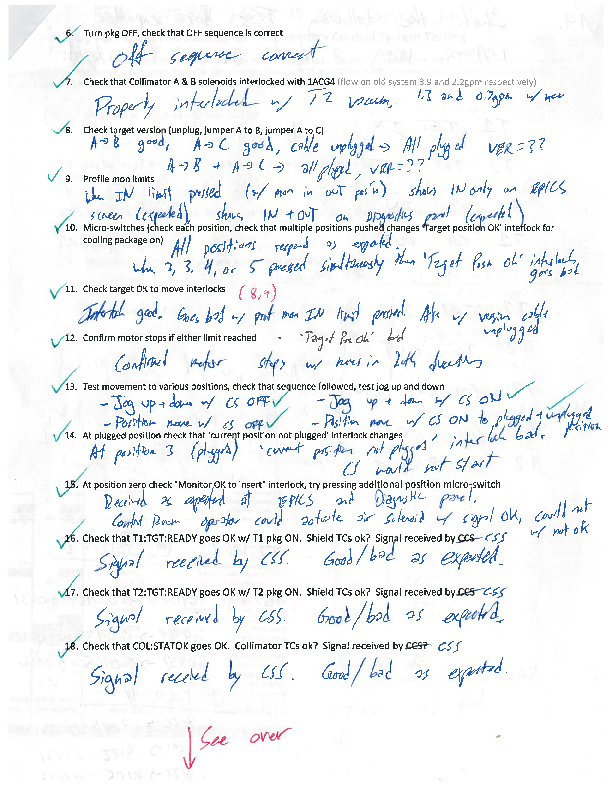 6. Turn pkg OFF, check that OFF sequence is correct
Off sequence correct
7. Check that Collimator A & B solenoids interlocked with 1ACG4 (flow on old system 3.9 and 2.2gpm respectively)
Properly interlocked w/ T2 vacuum, 1.3 and 0.7gpm w/ new
8. Check target version (unplug, jumper A to B, jumper A to C)
A→B good, A→C good, cable unplugged → All plugged VER=??
A→B + A→C → all plugged, VER=??
9. Profile mon limits
When IN limit pressed (w/ mon in OUT pos'n) shows IN only on EPICS
screen (expected), shows IN + OUT on Diagnostics panel (expected)
10. Micro-switches (check each position, check that multiple positions pushed changes 'Target position OK' interlock for
cooling package on)
All positions respond as expected.
When 2, 3, 4, or 5 pressed simultaneously then 'Target Posn Ok' interlock
goes bad
11. Check target OK to move interlocks (8,9)
Interlock good. Goes bad w/ prof mon IN limit pressed. Also w/ version cable
unplugged
12. Confirm motor stops if either limit reached - 'Target Pos Ok' bad
Confirmed motor stops w/ moves in both directions
13. Test movement to various positions, check that sequence followed, test jog up and down
- Jog up + down w/ CS OFF ✓ - Jog up + down w/ CS ON ✓
- Position move w/ CS OFF ✓ - Position move w/ CS ON to plugged + unplugged
position
14. At plugged position check that 'current position not plugged' interlock changes
At position 3 (plugged) 'current position not plugged' interlock bad.
CS would not start
15. At position zero check "Monitor OK to insert" interlock, try pressing additional position micro-switch
Received as expected at EPICS and Diagnostic panel.
Control Room operator could activate air solenoid w/ signal OK, could not
w/ not ok
16. Check that T1:TGT:READY goes OK w/ T1 pkg ON. Shield TCs ok? Signal received by CCS CSS
Signal received by CSS. Good/bad as expected.
17. Check that T2:TGT:READY goes OK w/ T2 pkg ON. Shield TCs ok? Signal received by CCS CSS
Signal received by CSS. Good/bad as expected.
18. Check that COL:STATOK goes OK. Collimator TCs ok? Signal received by CCS? CSS
Signal received by CSS. Good/bad as expected.
See over